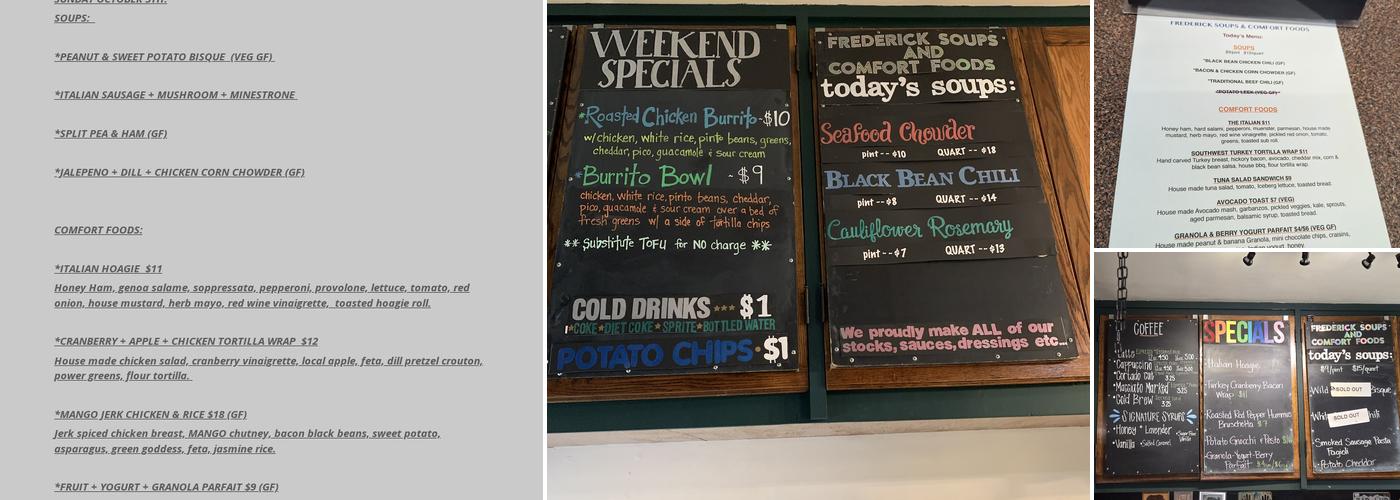 SOUPS:
*PEANUT & SWEET POTATO BISQUE (VEG GF)
*ITALIAN SAUSAGE + MUSHROOM + MINESTRONE
*SPLIT PEA & HAM (GF)
*JALEPENO + DILL + CHICKEN CORN CHOWDER (GF)
COMFORT FOODS:
*ITALIAN HOAGIE $11
Honey Ham, genoa salame, soppressata, pepperoni, provolone, lettuce, tomato, red
onion, house mustard, herb mayo, red wine vinaigrette, toasted hoagie roll.
*CRANBERRY + APPLE + CHICKEN TORTILLA WRAP $12
House made chicken salad, cranberry vinaigrette, local apple, feta, dill pretzel crouton,
power greens, flour tortilla.
*MANGO JERK CHICKEN & RICE $18 (GF)
Jerk spiced chicken breast, MANGO chutney, bacon black beans, sweet potato,
asparagus, green goddess, feta, jasmine rice.
*FRUIT + YOGURT + GRANOLA PARFAIT $9 (GF)
WEEKEND
SPECIALS
*Roasted Chicken Burrito-$10
w/chicken, white rice, pinto beans, greens,
cheddar, pico, guacamole & sour cream
*Burrito Bowl - $9
chicken, white rice, pinto beans, cheddar,
pico, guacamole & sour cream over a bed of
fresh greens w/ a side of tortilla chips
** Substitute TOFU for NO charge **
COLD DRINKS *** $1
*COKE*DIET COKE*SPRITE*BOTTLED WATER
POTATO CHIPS·$1
FREDERICK SOUPS
AND
COMFORT FOODS
today's soups:
Seafood Chowder
pint -- $10 QUART -- $18
BLACK BEAN CHILI
pint -- $8 QUART -- $14
Cauliflower Rosemary
pint -- $7 QUART -- $13
We proudly make ALL of our
stocks, sauces, dressings etc...
FREDERICK SOUPS & COMFORT FOODS
Today's Menu:
SOUPS
*BLACK BEAN CHICKEN CHILI (GF)
*BACON & CHICKEN CORN CHOWDER (GF)
*TRADITIONAL BEEF CHILI (GF)
*POTATO LEEK (VEG GF)*
COMFORT FOODS
THE ITALIAN $11
Honey ham, hard salami, pepperoni, muenster, parmesan, house made
mustard, herb mayo, red wine vinaigrette, pickled red onion, tomato,
greens, toasted sub roll.
SOUTHWEST TURKEY TORTILLA WRAP $11
Hand carved Turkey breast, hickory bacon, avocado, cheddar mix, corn &
black bean salsa, house bbq, flour tortilla wrap.
TUNA SALAD SANDWICH $9
House made tuna salad, tomato, Iceberg lettuce, toasted bread.
AVOCADO TOAST $7 (VEG)
House made Avocado mash, garbanzos, pickled veggies, kale, sprouts,
aged parmesan, balsamic syrup, toasted bread.
GRANOLA & BERRY YOGURT PARFAIT $4/$6 (VEG GF)
House made peanut & banana Granola, mini chocolate chips, craisins,
COFFEE
*Latte
*Cappuccino
*Cortado
*Macchiato
*Cold Brew
SIGNATURE SYRUPS
*Honey *Lavender
*Vanilla *Salted Caramel
SPECIALS
*Italian Hoagie
*Turkey Cranberry Bacon
Wrap $11
*Roasted Red Pepper Hummus
Bruschetta $7
*Potato Gnocchi + Pesto
*Granola-Yogurt-Berry
Parfait
FREDERICK SOUPS
AND
COMFORT FOODS
today's soups:
$9/pint $15/quart
Wild SOLD OUT Bisque
SOLD OUT
Smoked Sausage Pasta
Fagioli
*Potato Cheddar